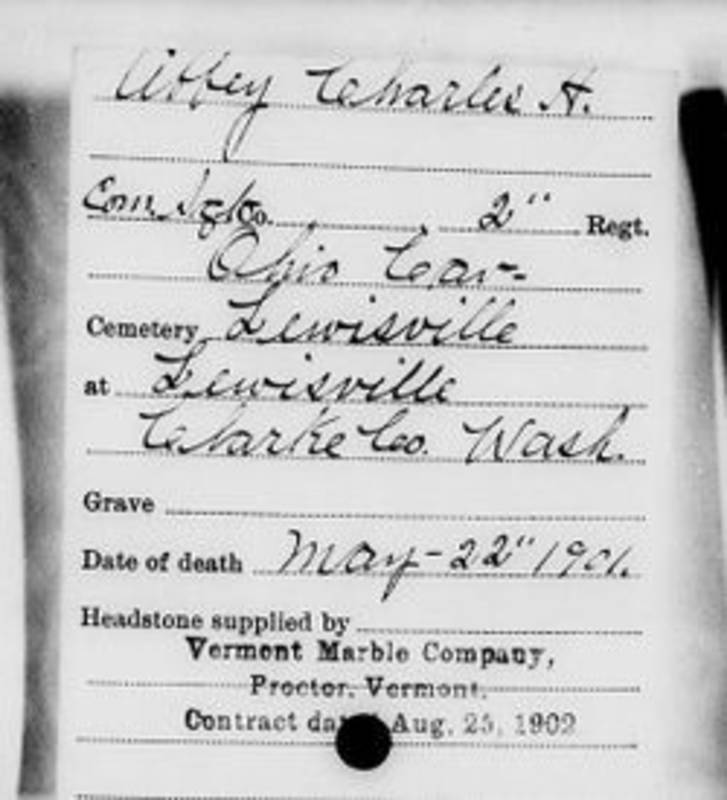 Abbey Charles A.
Com. Sgt. Co. 2" Regt.
Ohio Cav-
Cemetery Lewisville
at Lewisville
Clarke Co. Wash.
Grave
Date of death May-22" 1901.
Headstone supplied by
Vermont Marble Company,
Proctor, Vermont.
Contract Aug. 25, 1902